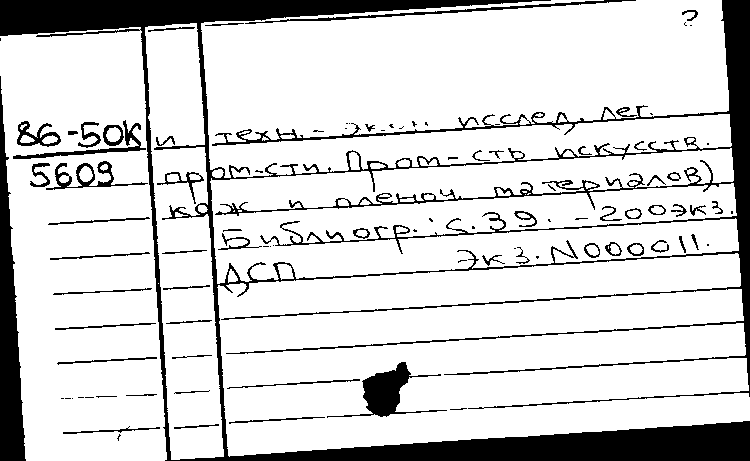 ?
86-50К и техн.-экон исслед. лег.
5609 пром-сти. Пром-сть искусств.
кож и пленоч. материалов)
Библиогр.: с.39. - 200экз.
ДСП Экз.N000011.